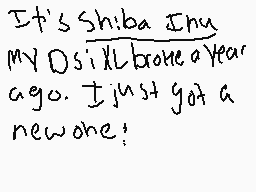 It's Shiba Inu
MY DSi XL broke a year
ago. I just got a
new one!